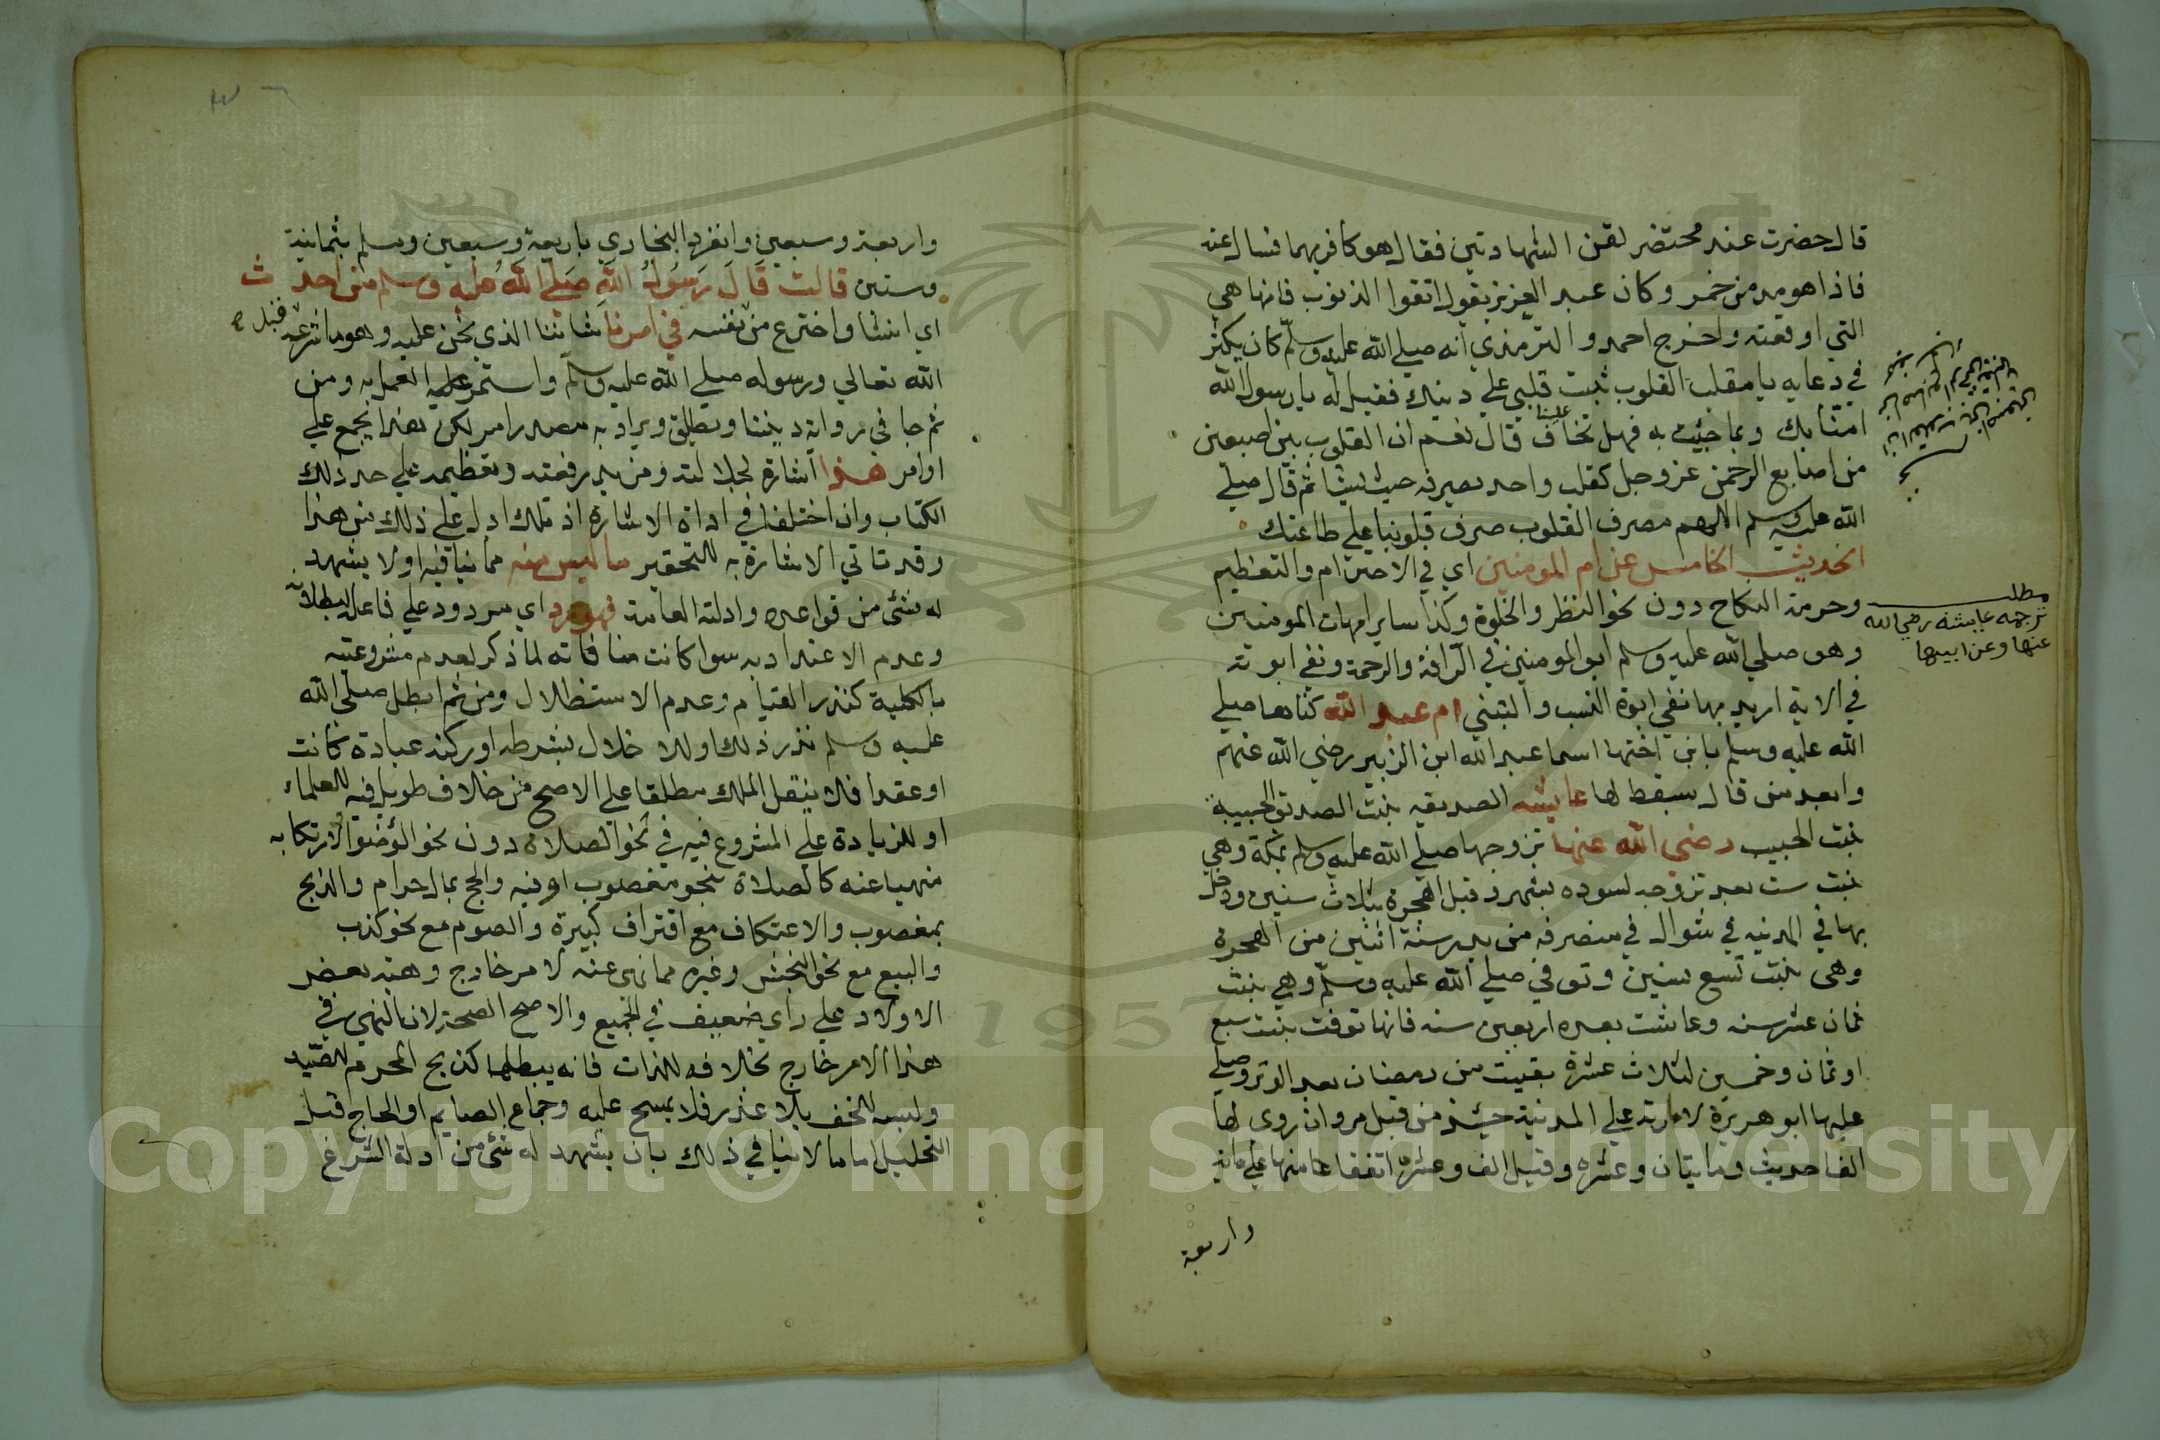 قال حضرت عند محتضر لقن الشهادتين فقال هو كافر بهما فسال عنه
فاذا هو مدمن خمر وكان عبد العزيز يقول اتقوا الذنوب فانها هي
التي اوقعته واخرج احمد والترمذي انه صلي الله عليه وسلم كان يكثر
في دعايه يا مقلب القلوب ثبت قلبي علي دينك فقيل له يا رسول الله
امنا بك وبما جئت به فهل تخاف علينا قال نعم ان القلوب بين اصبعين
من اصابع الرحمن عز وجل كقلب واحد يصرفه حيث يشا ثم قال صلي
الله عليه وسلم اللهم مصرف القلوب صرف قلوبنا علي طاعتك
الحديث الخامس عن ام المومنين اي في الاحترام والتعظيم
وحرمة النكاح دون نحو النظر والخلوة وكذا ساير امهات المومنين
وهو صلي الله عليه وسلم ابو المومنين في الرافة والرحمة ونفي ابوته
في الاية اريد بها نفي ابوة النسب والتبني ام عبد الله كناها صلي
الله عليه وسلم بابن اختها اسما عبد الله ابن الزبير رضي الله عنهم
وابعد من قال بسقط لها عايشه الصديقه بنت الصديق الحبيبة
بنت الحبيب رضي الله عنها تزوجها صلي الله عليه وسلم بمكة وهي
بنت ست بعد تزوجه لسوده بشهر وقبل الهجرة بثلاث سنين ودخل
بها في المدينه في شوال في منصرفه من بدر سنة اثنين من الهجرة
وهي بنت تسع سنين وتوفي صلي الله عليه وسلم وهي بنت
ثمان عشر سنه وعاشت بعده اربعين سنه فانها توفت بنت سبع
او ثمان وخمسين لثلاث عشرة بقيت من رمضان بعد الوتر وصلي
عليها ابو هريرة لامارته علي المدينة حينئذ من قبل مروان روى لها
الفا حديث ومايتان وعشره وقيل الف وعشرة اتفقا منها علي ماية
واربعة
مطلب
ترجمة عايشه رضي الله
عنها وعن ابيها
واربعة وسبعين وانفرد البخاري باربعة وسبعين ومسلم بثمانية
وستين قالت قال رسول الله صلي الله عليه وسلم من احدث
اي انشا واخترع من نفسه في امرنا شاننا الذي نحن عليه وهو ما شرعه
الله تعالي ورسوله صلي الله عليه وسلم واستمر عليه العمل به ومن
ثم جا في رواية ديننا ويطلق ويراد به مصدر امر لكن هذا يجمع علي
اوامر هذا اشارة لجلالته ومزيد رفعته وتعظيمه علي حد ذلك
الكتاب وان اختلفا في اداة الاشارة اذ تلك ادل علي ذلك من هذا
وقد تاتي الاشارة به للتحقير ما ليس منه مما ينافيه او لا يشهد
له شئ من قواعده وادلته العامة فهو رد اي مردود علي فاعله لبطلانه
وعدم الاعتداد به سوا كانت منافاته لما ذكر لعدم مشروعيته
بالكلية كنذر القيام وعدم الاستظلال ومن ثم ابطل صلي الله
عليه وسلم نذر ذلك او للاخلال بشرطه او ركنه عبادة كانت
او عقدا فلا ينقل الملك مطلقا علي الاصح من خلاف طويل فيه للعلماء
او للزيادة علي المشروع فيه في نحو الصلاة دون نحو الوضوء او لارتكابه
منهيا عنه كالصلاة بنحو مغصوب او فيه والحج بمال حرام والذبح
بمغصوب والاعتكاف مع اقتراف كبيرة والصوم مع نحو كذب
والبيع مع نحو النجش وغيره مما نهى عنه لامر خارج وهبة بعض
الاولاد علي راي ضعيف في الجميع والاصح الصحة لان النهي في
هذا الامر خارج بخلافه للذات فانه يبطلها كذبح المحرم للصيد
ولبسه للخف بلا عذر فلا يمسح عليه وجماع الصايم او الحاج قبل
التحليل اما ما لا ينافي ذلك بان يشهد له شئ من ادلة الشرع
Copyright © King Saud University
1957